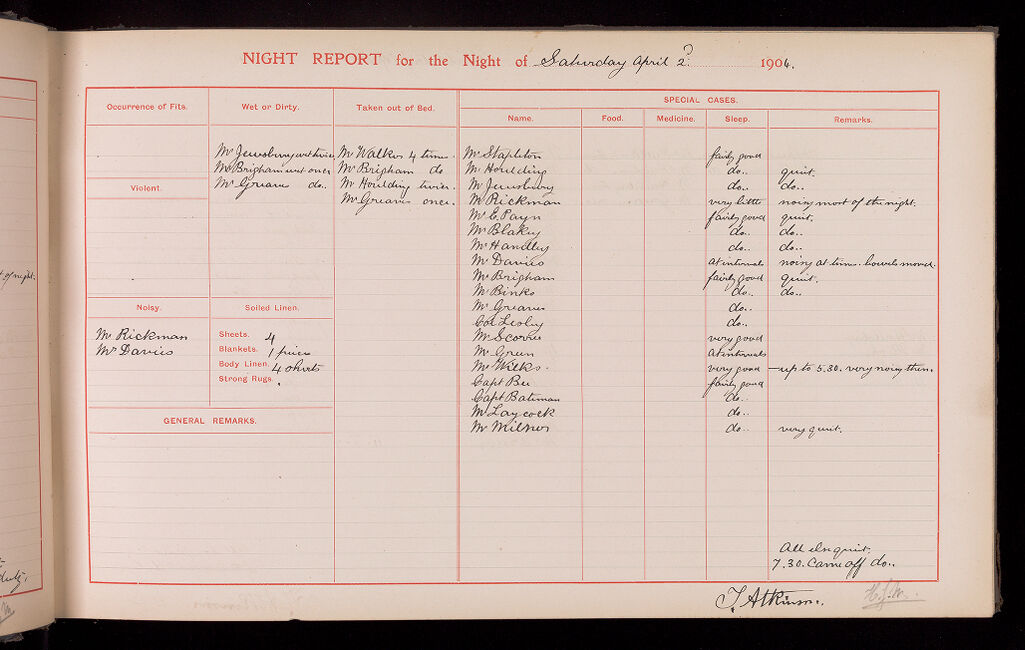 NIGHT REPORT for the Night of Saturday April 2. 1904.
Occurrence of Fits.
Violent.
Noisy.
Mr Rickman
Mr Davies
Wet or Dirty.
Mr Jewsbury wet twice
Mr Brigham wet once
Mr Greaves do.
Soiled Linen.
Sheets. 4
Blankets. 1 piece
Body Linen. 4 shirts
Strong Rugs.
GENERAL REMARKS.
Taken out of Bed.
Mr Walker 4 times.
Mr Brigham do
Mr Houlding twice.
Mr Greaves once.
SPECIAL CASES.
Name. Food. Medicine. Sleep. Remarks.
Mr Stapleton fairly good
Mr Houlding do.. quiet.
Mr Jewsbury do.. do..
Mr Rickman very little noisy most of the night.
Mr C. Payn fairly good quiet.
Mr Blakey do.. do..
Mr Handley do.. do..
Mr Davies at intervals noisy at time. bowels moved.
Mr Brigham fairly good quiet.
Mr Binks do.. do..
Mr Greaves do..
Col Lesley do..
Mr Scorer very good
Mr Green at intervals
Mr Wilks. very good – up to 5.30. very noisy then.
Capt Bee fairly good
Capt Bateman do..
Mr Laycock do..
Mr Milner do.. very quiet.
All else quiet.
7.30. Came off do..
T. Atkinson.